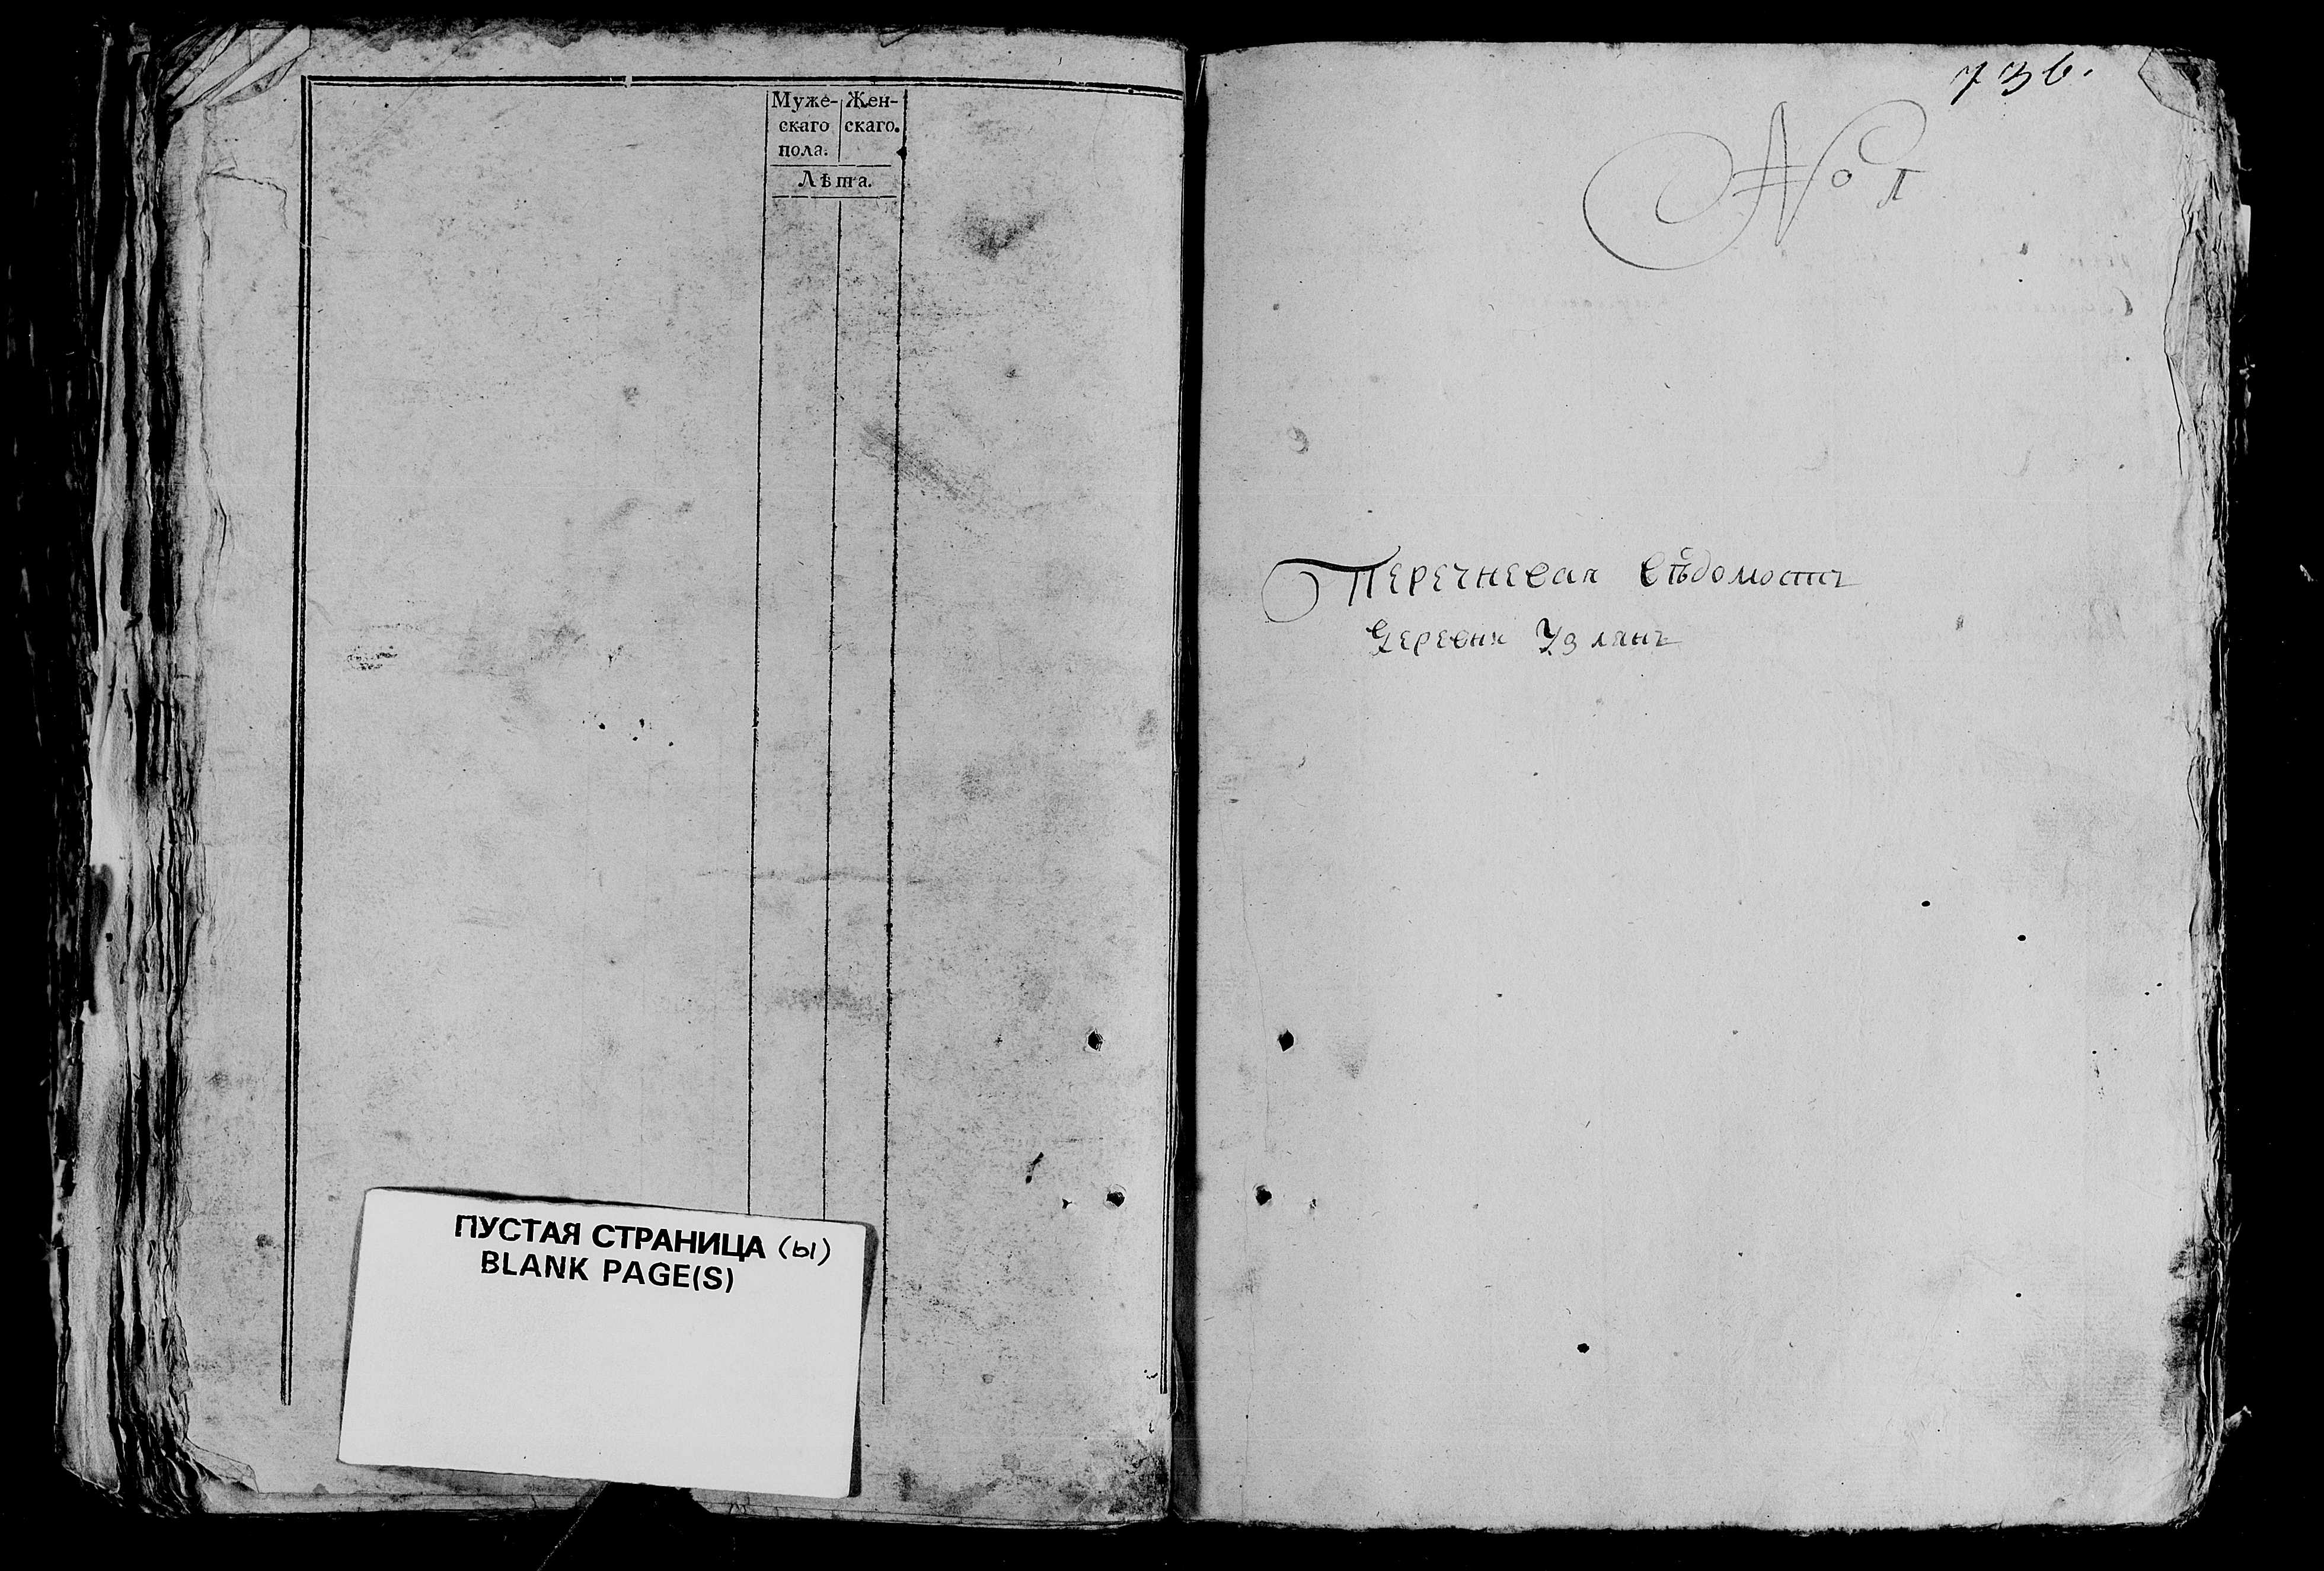 Муже- Жен-
скаго скаго.
пола.
Лѣта.
ПУСТАЯ СТРАНИЦА (ы)
BLANK PAGE(S)
736.
№ 1
Перечневая вѣдомость
Деревня Узланъ